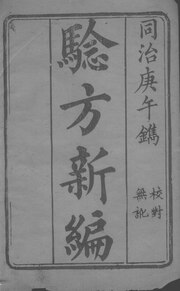 同治庚午鐫
驗方新編
校對
無訛